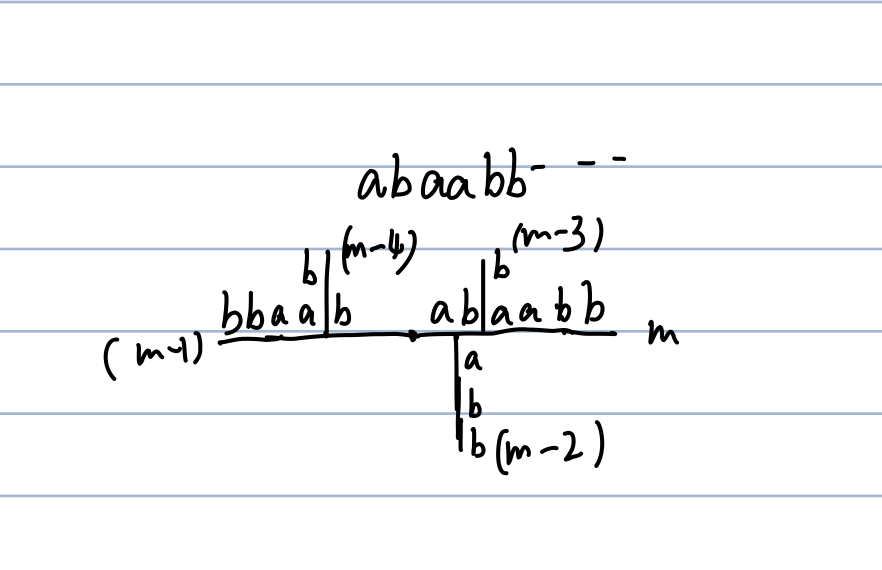 abaabb- - -
b (m-4) b (m-3)
bbaa b ab aabb m
(m-1) a
b
b (m-2)